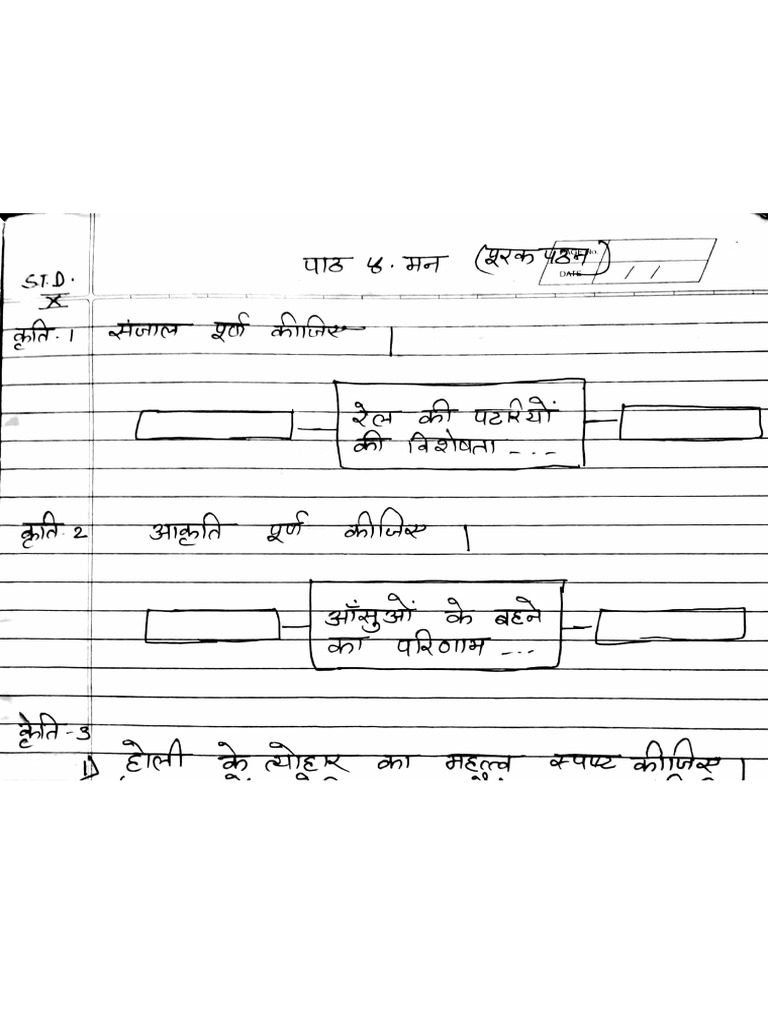 पाठ ४. मन (पूरक पठन)
DATE / /
STD.
X
कृति.1 संजाल पूर्ण कीजिए |
रेल की पटरियों
की विशेषता -...
कृति.2 आकृति पूर्ण कीजिए |
आँसुओं के बहने
का परिणाम -...
कृति-3
1) होली के त्योहार का महत्त्व स्पष्ट कीजिए |